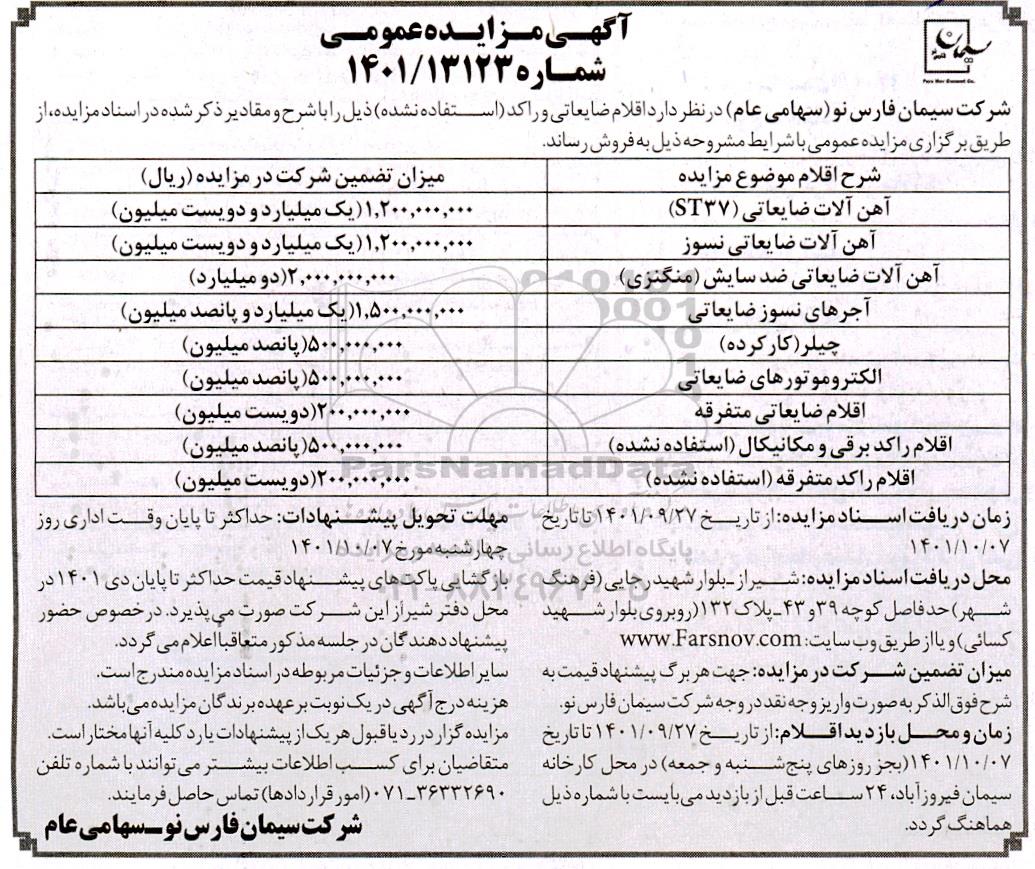 آگهی مزایده عمومی
شماره ۱۴۰۱/۱۳۱۲۳
سیمان
Fars Nov Cement Co.
شرکت سیمان فارس نو (سهامی عام) در نظر دارد اقلام ضایعاتی و راکد (استفاده نشده) ذیل را با شرح و مقادیر ذکر شده در اسناد مزایده، از
طریق برگزاری مزایده عمومی با شرایط مشروحه ذیل به فروش رساند.
شرح اقلام موضوع مزایده میزان تضمین شرکت در مزایده (ریال)
آهن آلات ضایعاتی (ST۳۷) ۱,۲۰۰,۰۰۰,۰۰۰(یک میلیارد و دویست میلیون)
آهن آلات ضایعاتی نسوز ۱,۲۰۰,۰۰۰,۰۰۰(یک میلیارد و دویست میلیون)
آهن آلات ضایعاتی ضد سایش (منگنزی) ۲,۰۰۰,۰۰۰,۰۰۰(دو میلیارد)
آجرهای نسوز ضایعاتی ۱,۵۰۰,۰۰۰,۰۰۰(یک میلیارد و پانصد میلیون)
چیلر(کارکرده) ۵۰۰,۰۰۰,۰۰۰(پانصد میلیون)
الکتروموتورهای ضایعاتی ۵۰۰,۰۰۰,۰۰۰(پانصد میلیون)
اقلام ضایعاتی متفرقه ۲۰۰,۰۰۰,۰۰۰(دویست میلیون)
اقلام راکد برقی و مکانیکال (استفاده نشده) ۵۰۰,۰۰۰,۰۰۰(پانصد میلیون)
اقلام راکد متفرقه (استفاده نشده) ۲۰۰,۰۰۰,۰۰۰(دویست میلیون)
ParsNamadData
زمان دریافت اسناد مزایده: از تاریخ ۱۴۰۱/۰۹/۲۷ تا تاریخ
۱۴۰۱/۱۰/۰۷
محل دریافت اسناد مزایده: شیراز ـ بلوار شهید رجایی (فرهنگ
شهر) حدفاصل کوچه ۳۹ و ۴۳ ـ پلاک ۱۳۲ (روبروی بلوار شهید
کسائی) و یا از طریق وب سایت: www.Farsnov.com
میزان تضمین شرکت در مزایده: جهت هر برگ پیشنهاد قیمت به
شرح فوق الذکر به صورت واریز وجه نقد در وجه شرکت سیمان فارس نو.
زمان و محل بازدید اقلام: از تاریخ ۱۴۰۱/۰۹/۲۷ تا تاریخ
۱۴۰۱/۱۰/۰۷ (بجز روزهای پنج شنبه و جمعه) در محل کارخانه
سیمان فیروزآباد، ۲۴ ساعت قبل از بازدید می بایست با شماره ذیل
هماهنگ گردد.
مهلت تحویل پیشنهادات: حداکثر تا پایان وقت اداری روز
چهارشنبه مورخ ۱۴۰۱/۱۰/۰۷
بازگشایی پاکت های پیشنهاد قیمت حداکثر تا پایان دی ۱۴۰۱ در
محل دفتر شیراز این شرکت صورت می پذیرد. در خصوص حضور
پیشنهاد دهندگان در جلسه مذکور متعاقباً اعلام می گردد.
سایر اطلاعات و جزئیات مربوطه در اسناد مزایده مندرج است.
هزینه درج آگهی در یک نوبت بر عهده برندگان مزایده می باشد.
مزایده گزار در رد یا قبول هر یک از پیشنهادات یا رد کلیه آنها مختار است.
متقاضیان برای کسب اطلاعات بیشتر می توانند با شماره تلفن
۰۷۱-۳۶۳۳۲۶۹۰ (امور قراردادها) تماس حاصل فرمایند.
شرکت سیمان فارس نو ـ سهامی عام